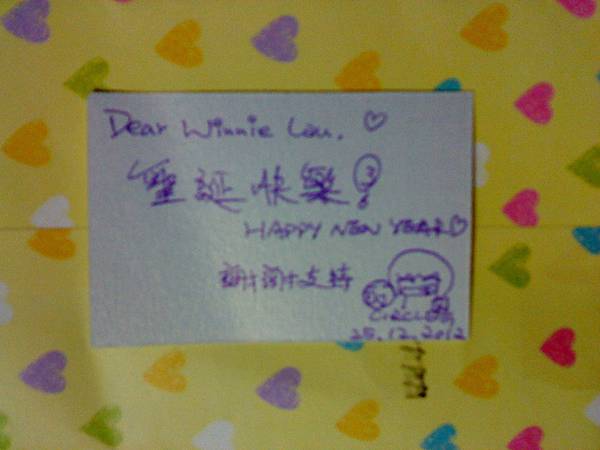 Dear Winnie Lau. ♡
聖誕快樂!
HAPPY NEW YEAR ♡
謝謝支持
25.12.2012